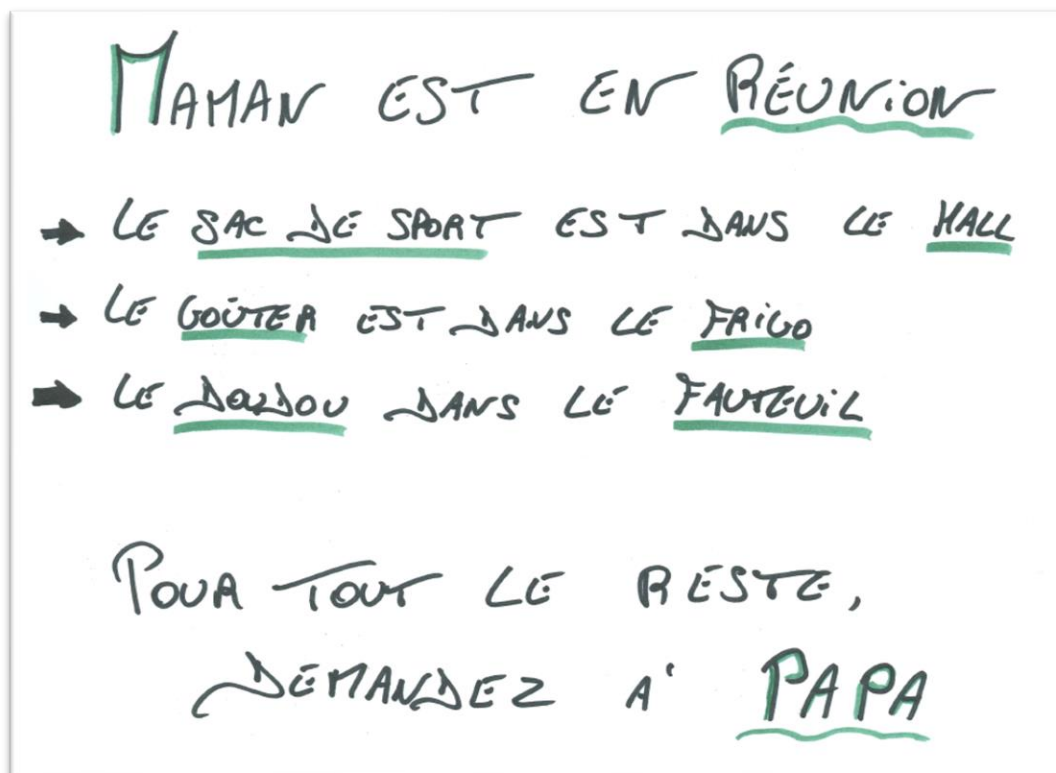 MAMAN EST EN RÉUNION
➔ LE SAC DE SPORT EST DANS LE HALL
➔ LE GOÛTER EST DANS LE FRIGO
➔ LE DOUDOU DANS LE FAUTEUIL
POUR TOUT LE RESTE,
DEMANDEZ À PAPA